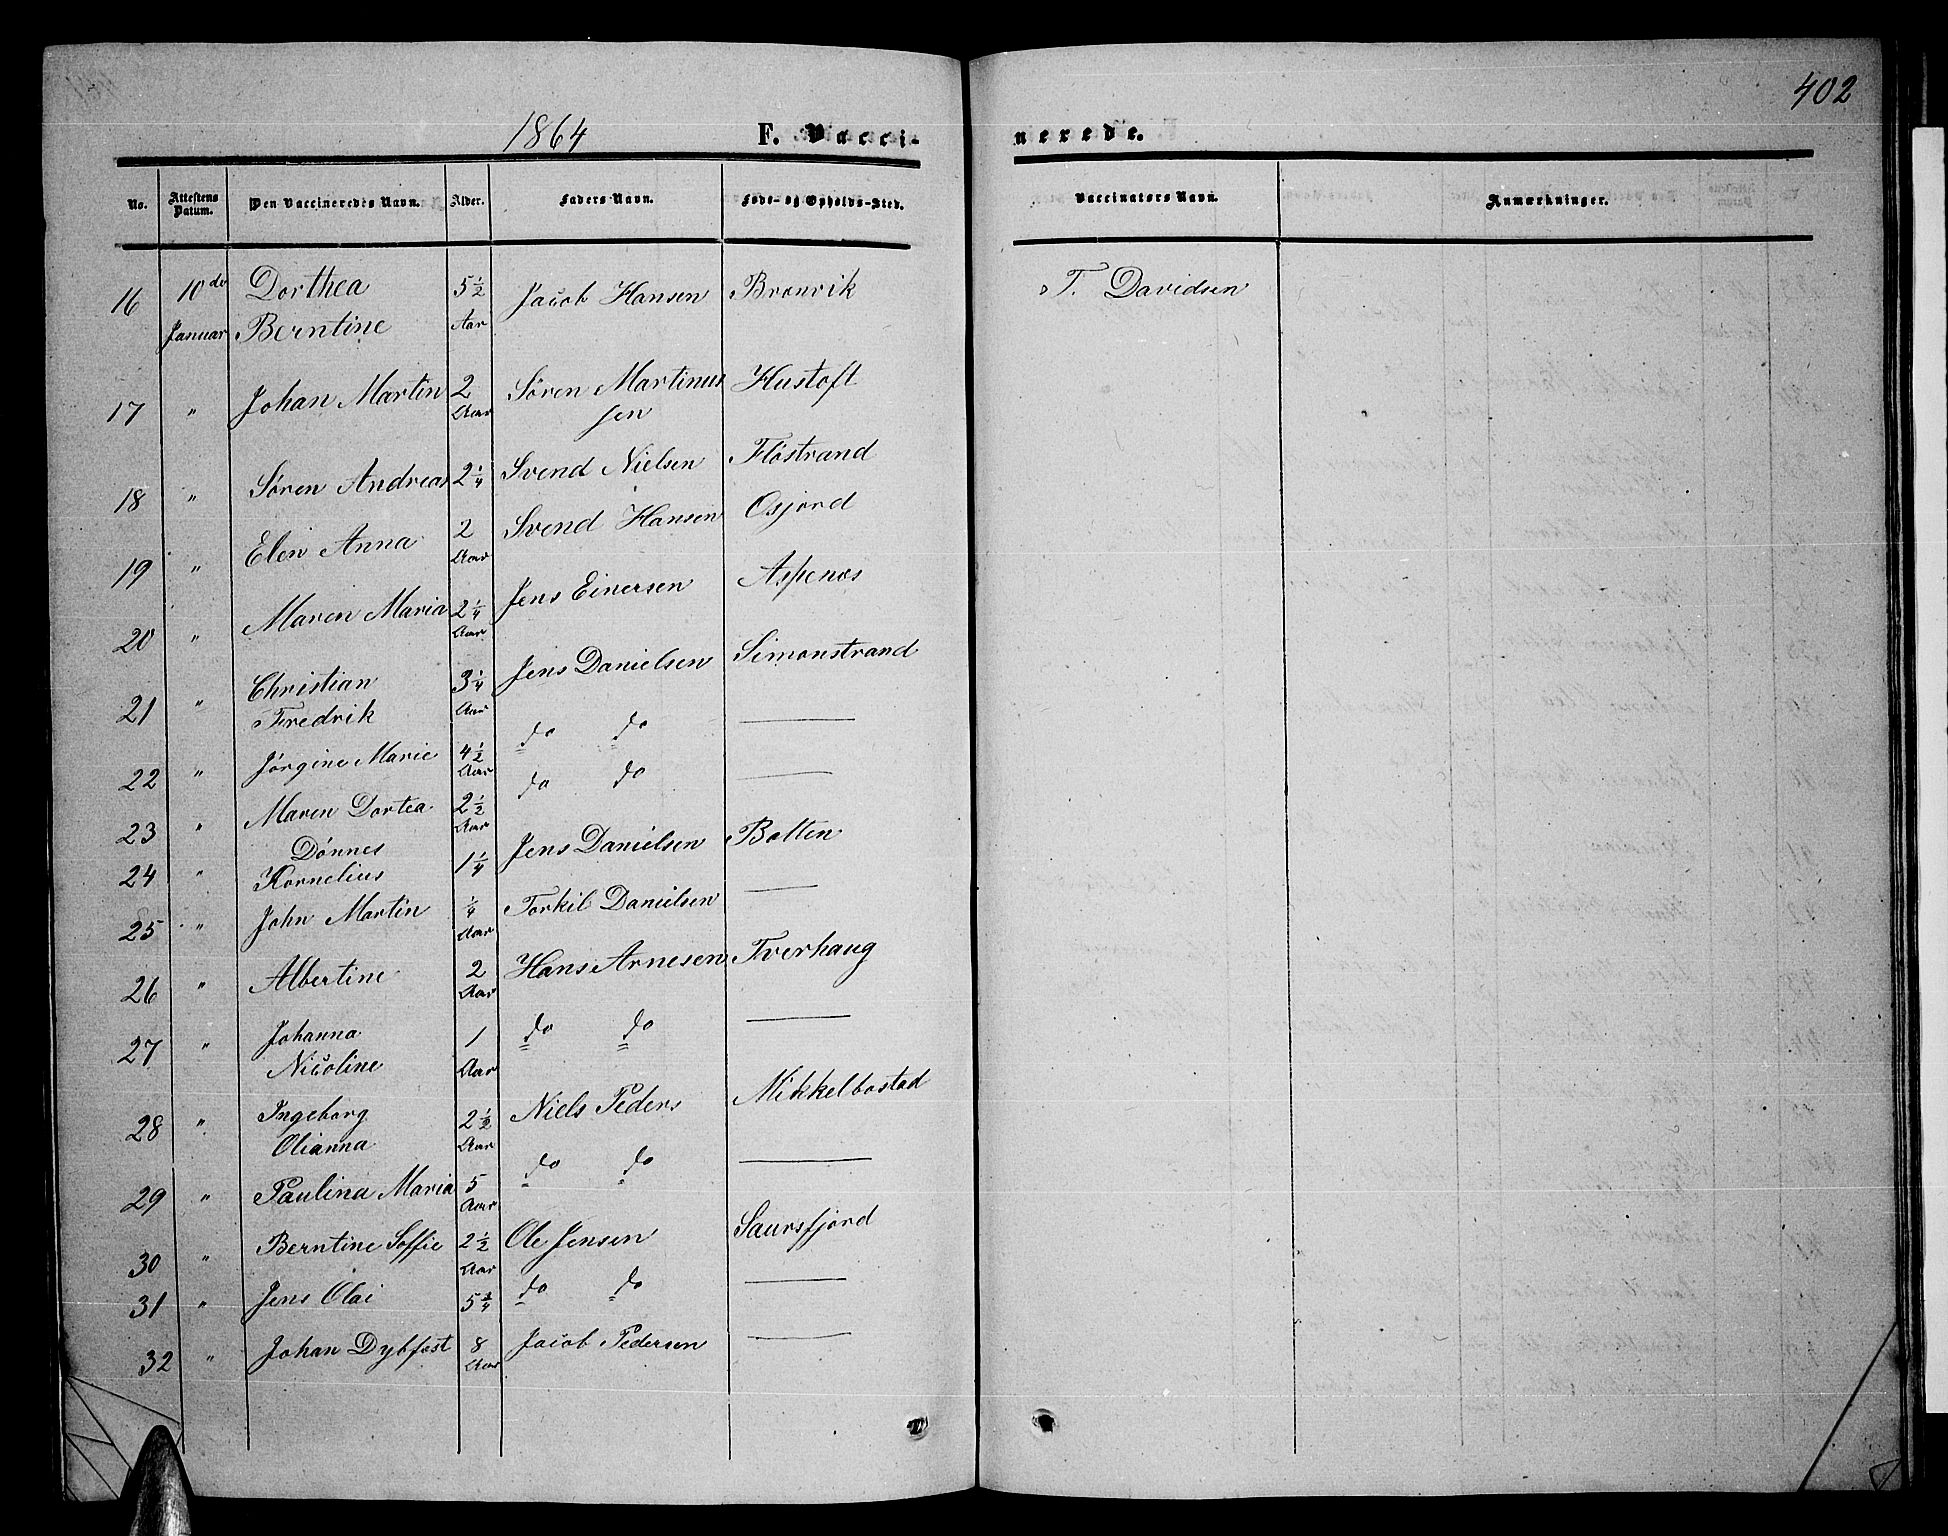 402
1864 F. Vacci- nerede.
No. Attestens Datum. Den Vaccineredes Navn. Alder. Faders Navn. Føde- og Opholds-Sted. Vaccinators Navn. Anmærkninger.
16 10de Januar Dorthea Berntine 5 1/2 Aar Jacob Hansen Bronvik T. Davidsen
17 " Johan Martin 2 Aar Søren Martinus sen Hustoft
18 " Søren Andreas 2 1/4 Svend Nielsen Fløstrand
19 " Elen Anna 2 Aar Svend Hansen Osjord
20 " Maren Maria 2 1/4 Aar Jens Einersen Aspenes
21 " Christian Fredrik 3 1/4 Aar Jens Danielsen Simonstrand
22 " Jørgine Marie 4 1/2 Aar do do —
23 " Maren Dortea 2 1/2 Aar do do —
24 " Dønnes Kornelius 1 1/4 Jens Danielsen Botten
25 " John Martin 1/4 Aar Torkil Danielsen —
26 " Albertine 2 Aar Hans Arnesen Tverhaug
27 " Johanna Nicoline 1 Aar do do —
28 " Ingeborg Olianna 2 1/2 Aar Niels Peders Mikkelbostad
29 " Paulina Maria 5 Aar do do —
30 " Berntine Soffie 2 1/2 Aar Ole Jensen Saursfjord
31 " Jens Olai 5 3/4 do do —
32 " Johan Dybfest 8 Aar Jacob Pedersen —